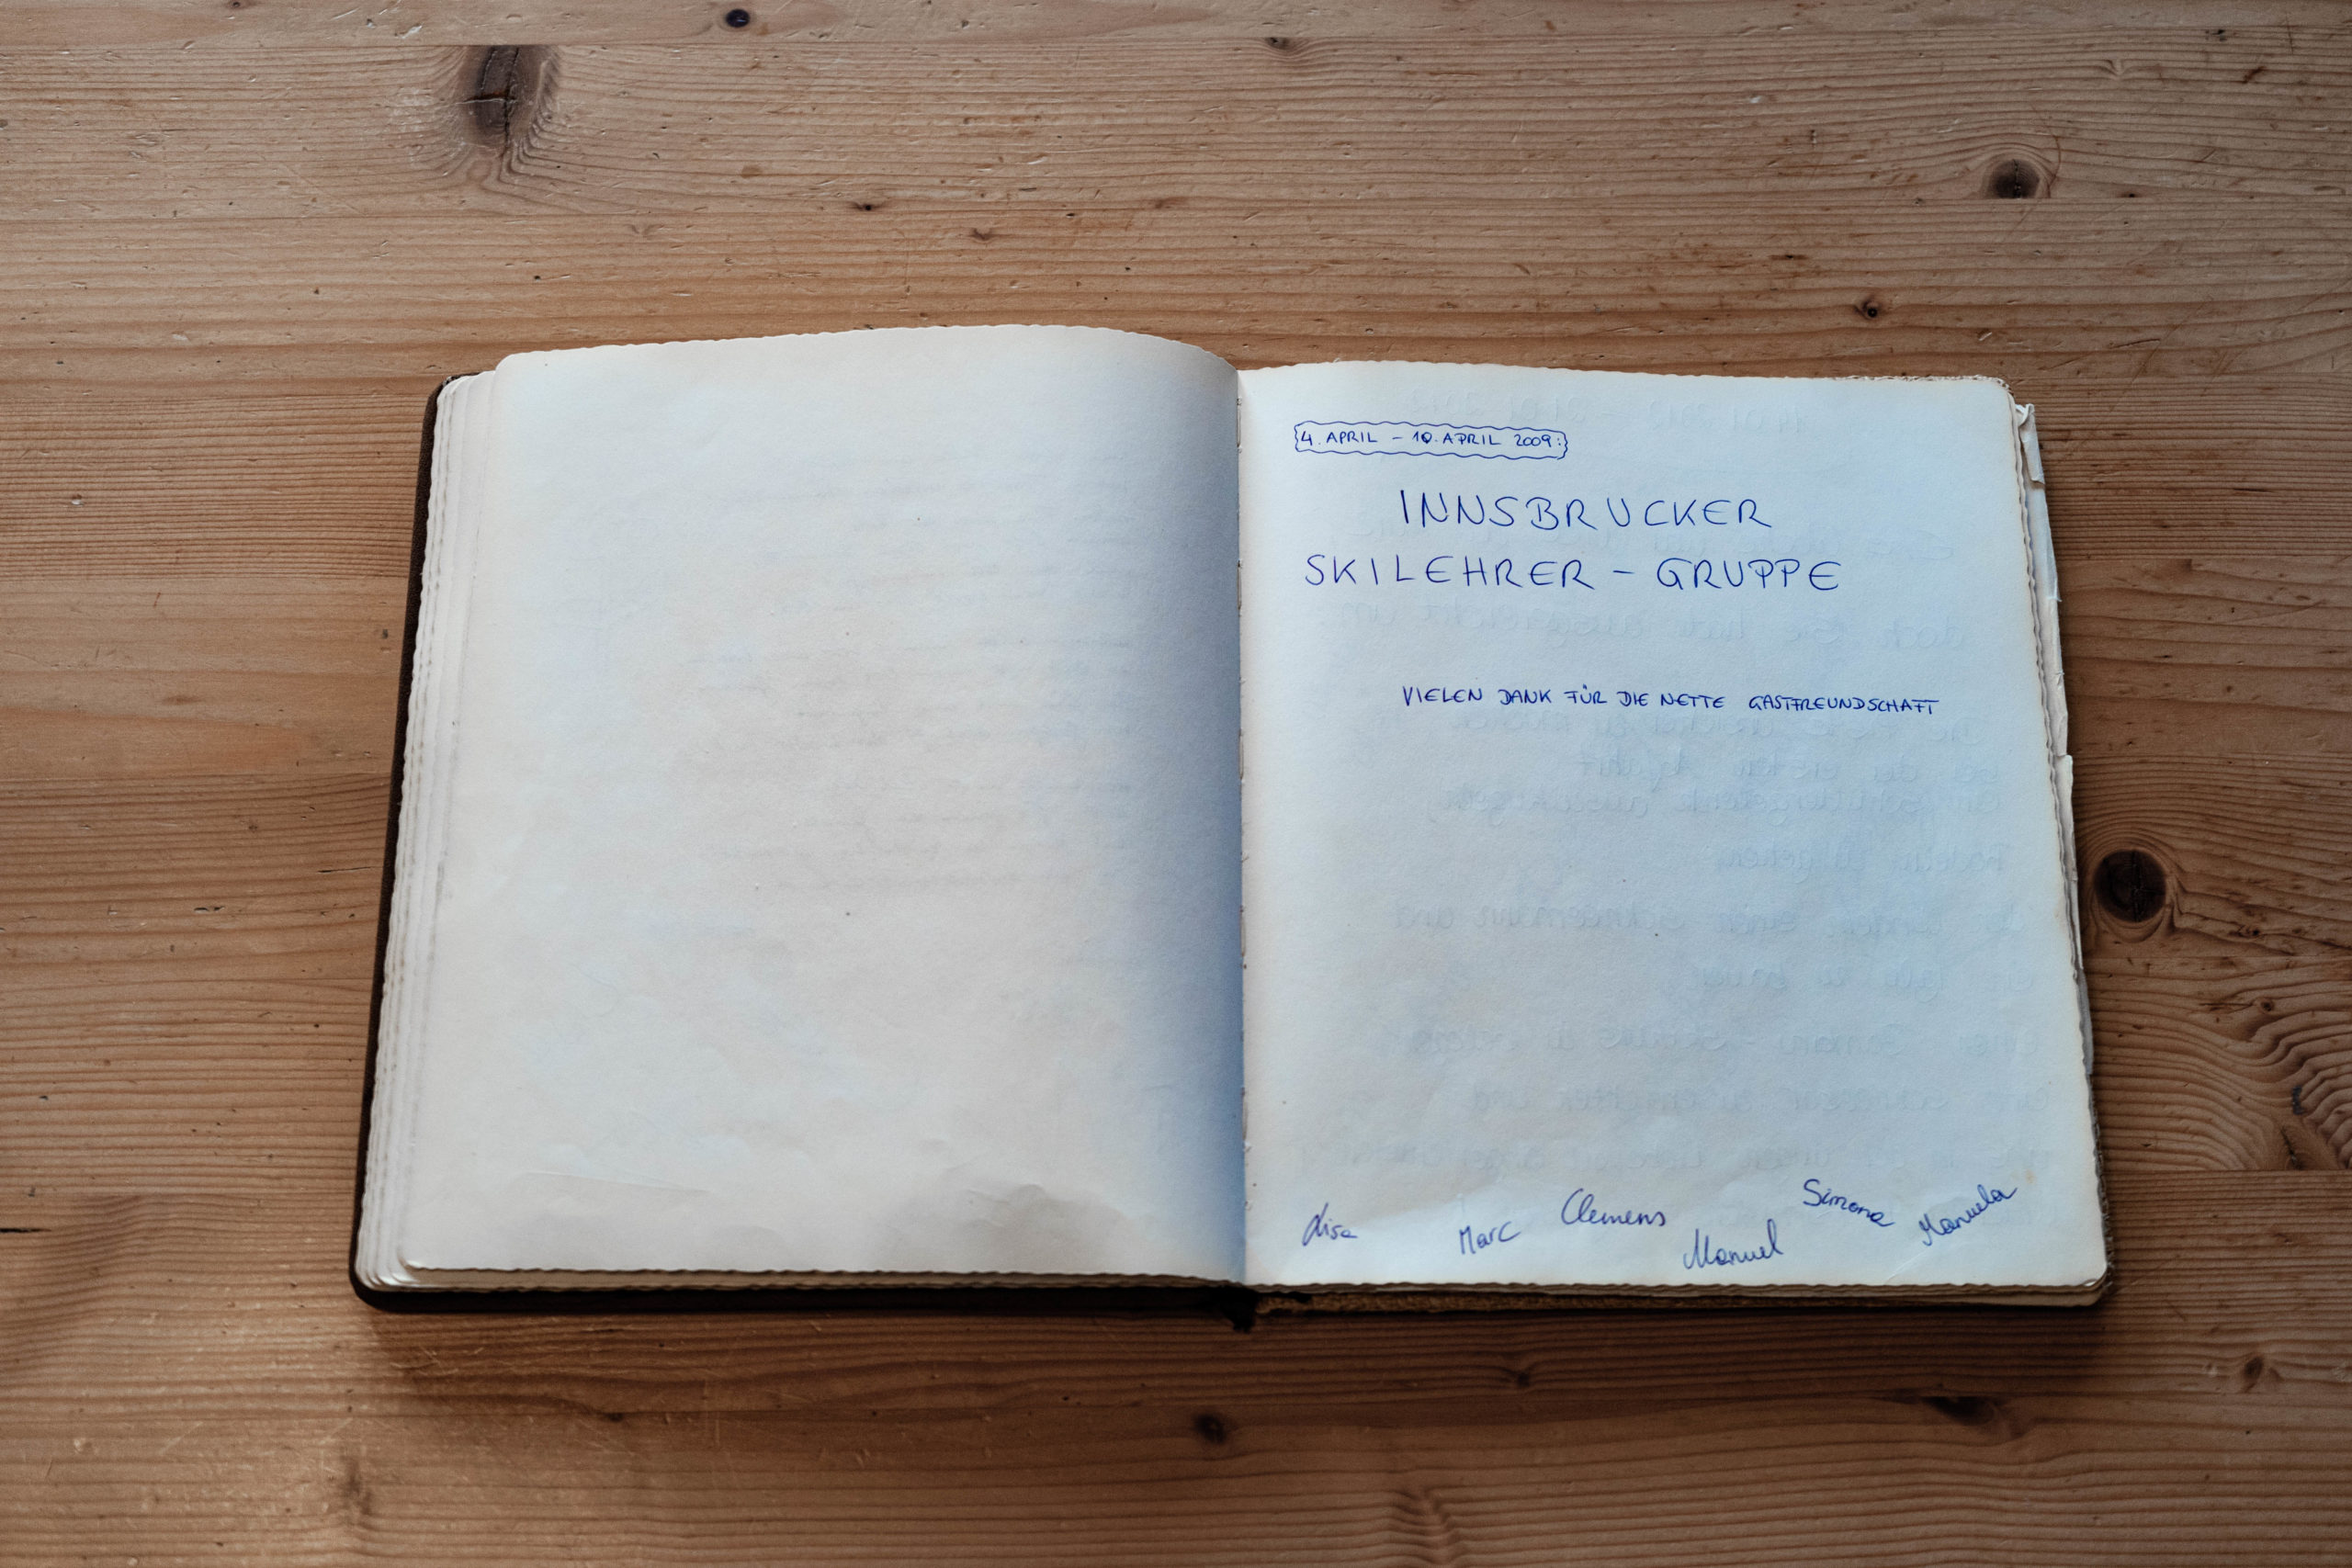 4. APRIL - 10. APRIL 2009:
INNSBRUCKER
SKILEHRER - GRUPPE
VIELEN DANK FÜR DIE NETTE GASTFREUNDSCHAFT
Lisa Marc Clemens Manuel Simona Manuela